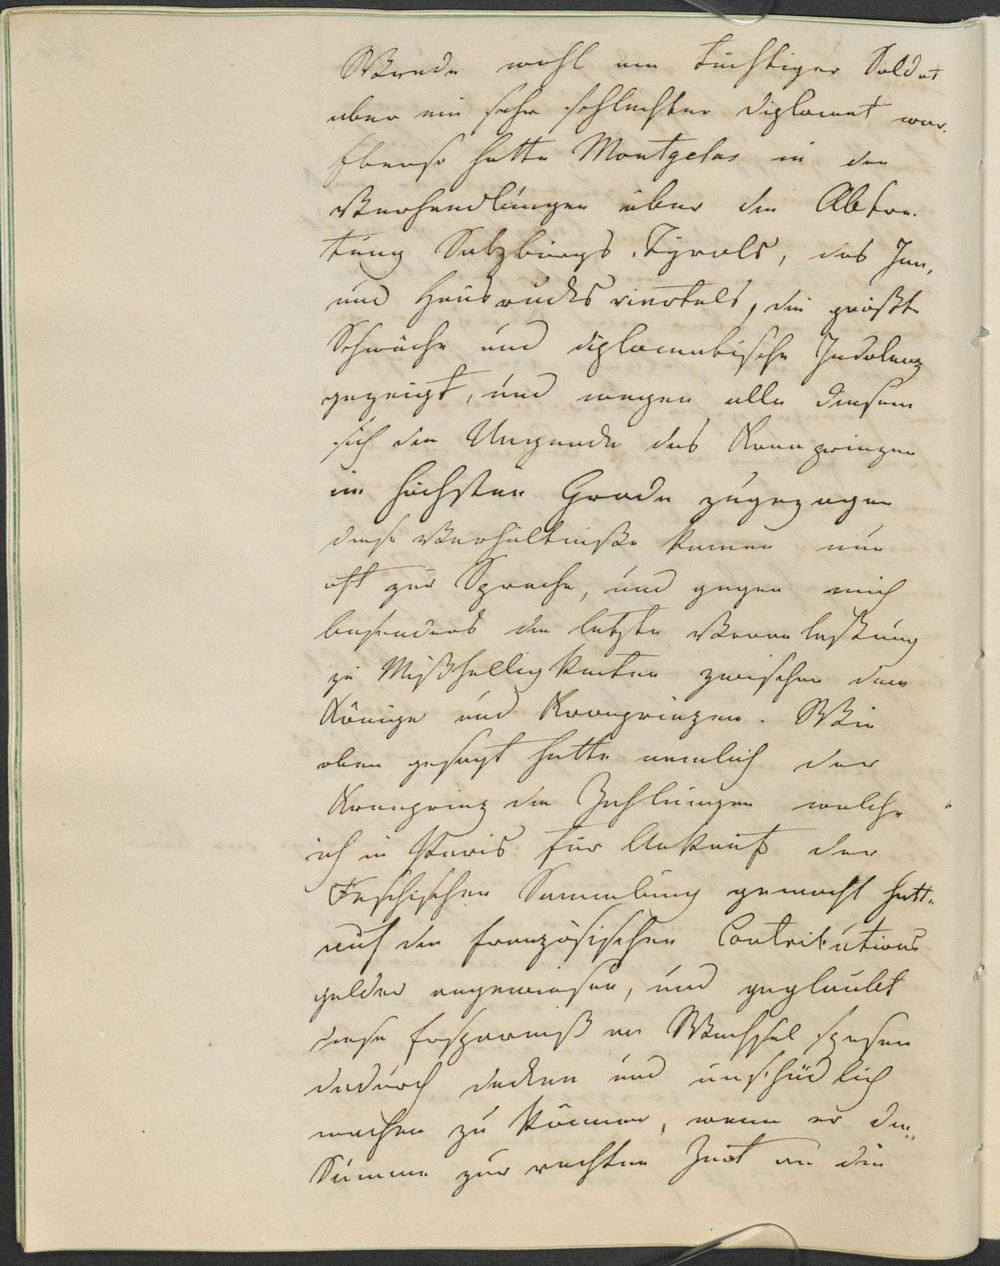 Wrede wohl ein tüchtiger Soldat
aber ein sehr schlechter Diplomat war.
Ebenso hatte Montgelas in den
Verhandlungen über die Abtre-
tung Salzburgs, Tyrols, des Inn,
und Hausrucksviertels, die größte
Schwäche und diplomatische Indolenz
gezeigt, und wegen alle diesem
sich die Ungnade des Kronprinzen
im höchsten Grade zugezogen
diese Verhältniße kamen nun
oft zur Sprache, und gegen mich
besonders die letzte Veranlaßung
zu Mißhelligkeiten zwischen dem
Könige und Kronprinzen. Wie
oben gesagt hatte nemlich der
Kronprinz die Zahlungen welche
ich in Paris für Ankauf der
Feschischen Sammlung gemacht hatte
auf die französischen Contributions
gelder angewiesen, und geglaubt
diese Ersparniß an Wechselspesen
dadurch decken und unschädlich
machen zu können, wenn er die
Summe zur rechten Zeit an die